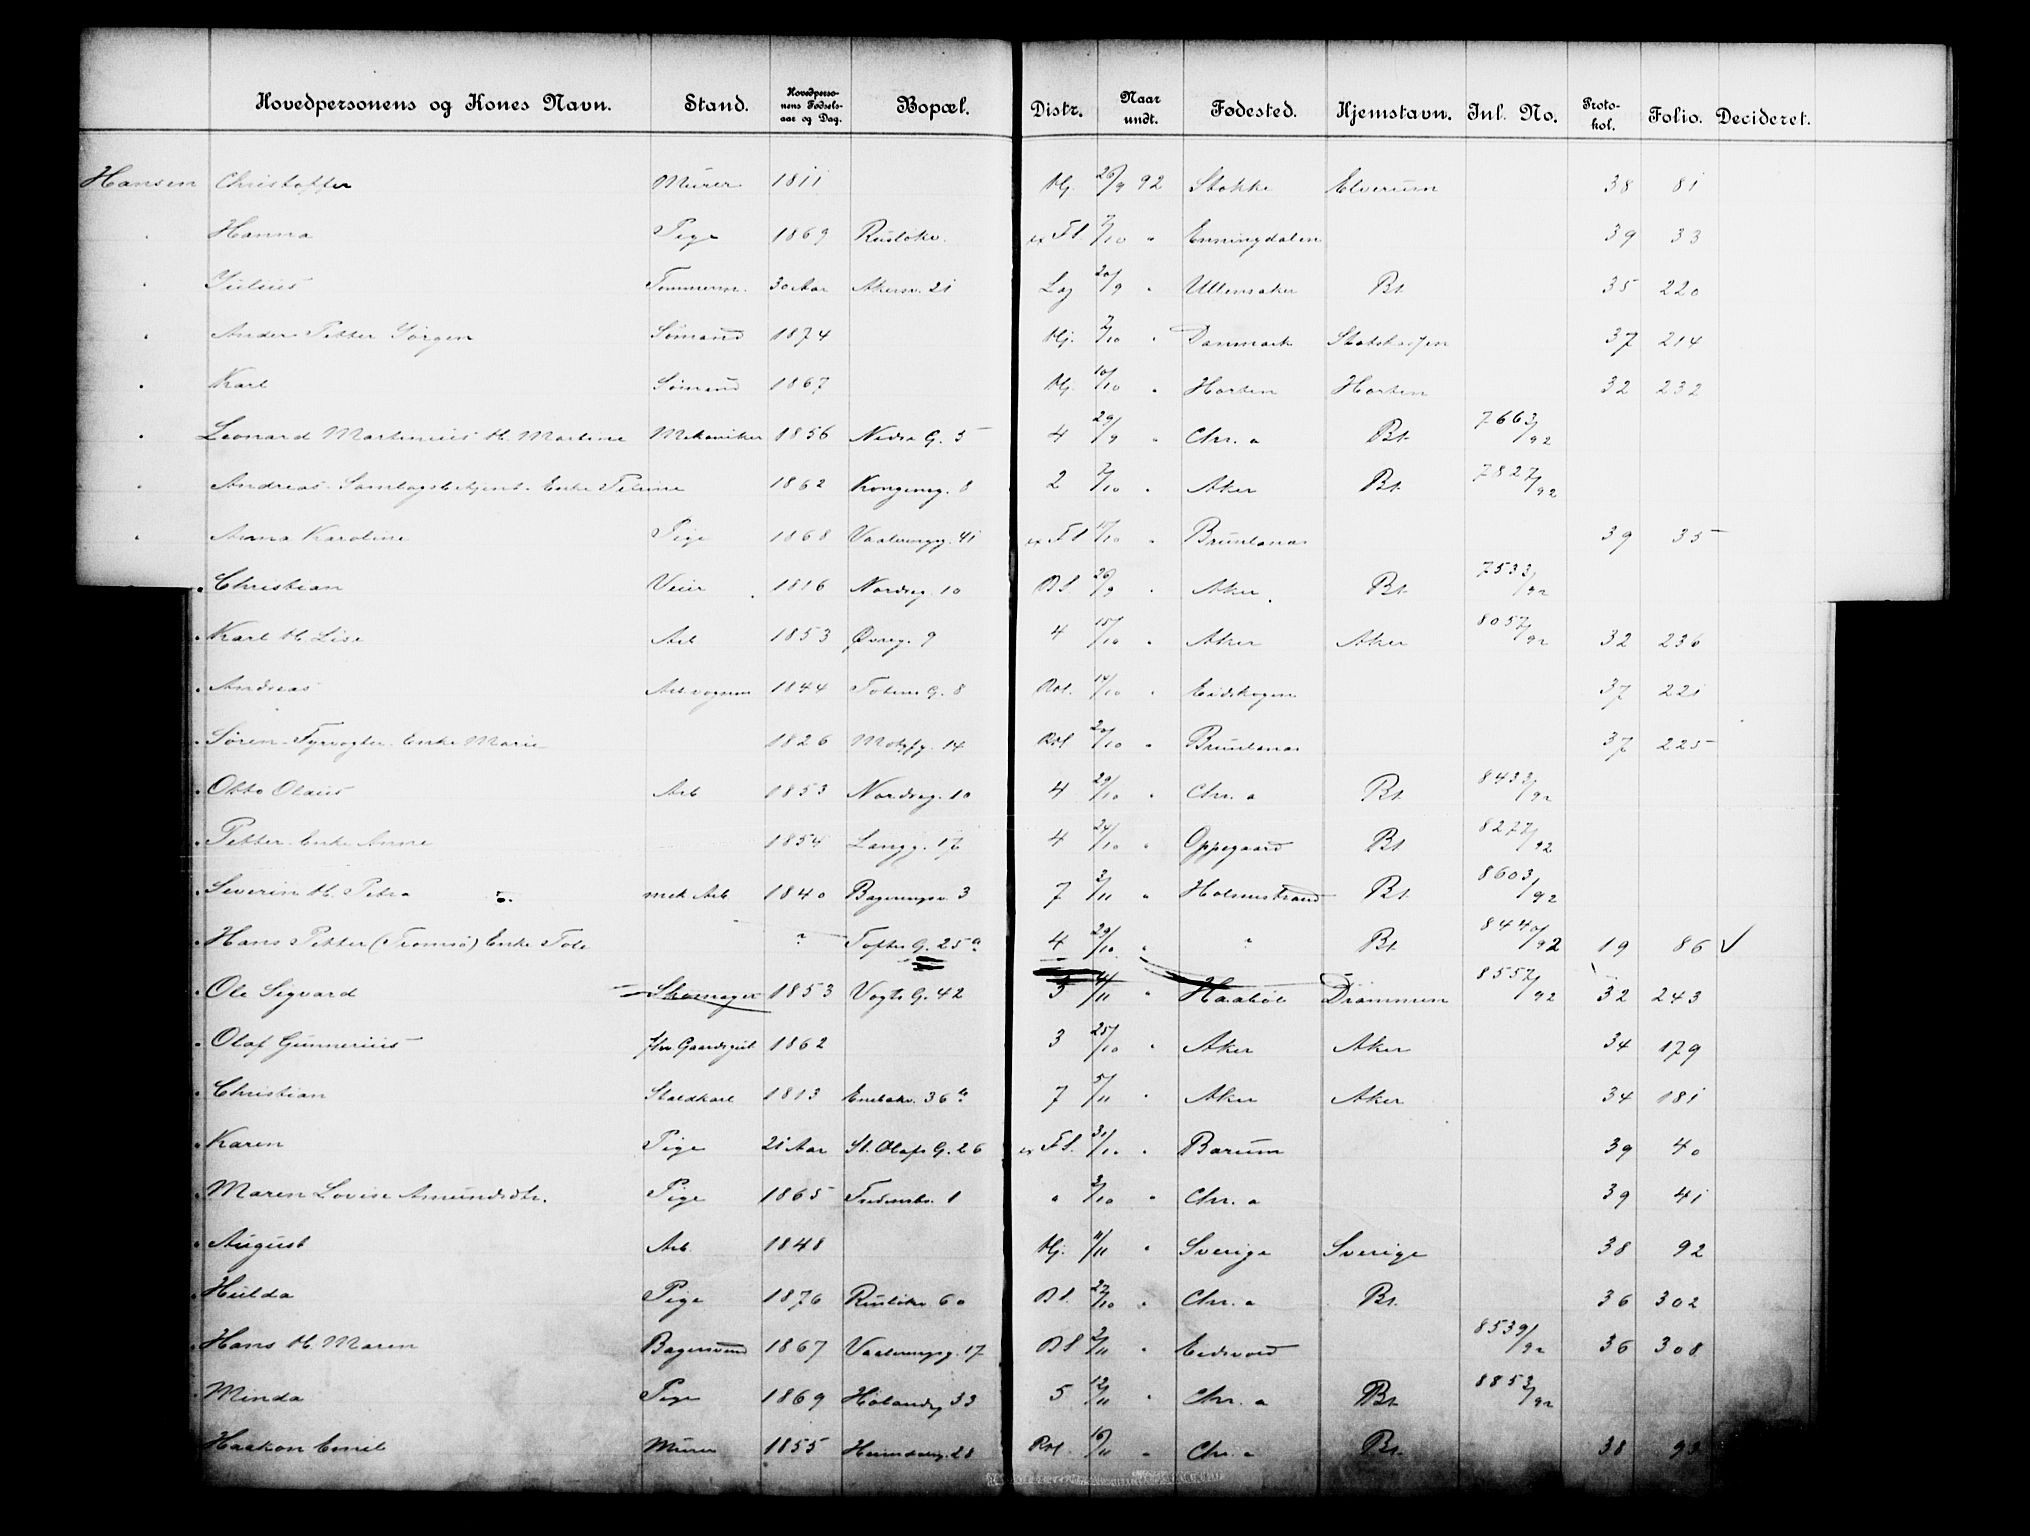 Hovedpersonens og Kones Navn. Stand. Hovedpersonens Fødselsaar og Dag. Bopæl. Distr. Naar undt. Fødested. Hjemstavn. Inl. No. Protokol. Folio. Decideret.
Hansen Christoffer Murer 1811 Hj. 26/9 92 Stokke Elverum 38 81
" Hanna Pige 1869 Ruslökv. ex Fl 7/10 " Enningdalen 39 33
" Julius Tømmerm. 30 Aar Akersv. 21 Lag 20/9 " Ullensaker Bt. 35 220
" Anders Petter Jörgen Sömand 1874 Hj. 7/10 " Danmark 37 214
" Karl Sömand 1867 Hj. 10/10 " Horten Horten 32 232
" Leonard Martinius H. Martine Mekaniker 1856 Nedre G. 5 4 29/9 " Chr.a Bt. 7663/92
" Andreas. Enke Petrine 1862 Kongensg. 8 2 7/10 " Aker Bt. 7827/92
" Anna Karoline Pige 1868 Vaalerengg. 41 ex Fl 17/10 " Brunlanæs 39 35
" Christian Veier 1816 Nordreg. 10 Bl. 26/9 " Aker Bt. 7533/92
" Karl H. Lise Arb 1853 Øvreg. 9 4 15/10 " Aker Aker 8057/92 32 236
" Andreas Arb vognm 1844 Totens G. 8 Rol. 14/10 " Eidskogen 37 221
" Sören. Fyrvogter. Enke Marie 1826 Motzfg. 14 Rol 20/10 " Brunlanæs 37 225
" Otto Olaus Arb 1853 Nordreg. 10 4 29/10 " Chr.a Bt. 8433/92
" Petter. Enke Anne 1854 Langg. 17 4 24/10 " Oppegaard Bt 8277/92
" Severin H. Petra mek Arb 1840 Bageringsv. 3 7 3/11 " Holmestrand Bt. 8603/92
" Hans Petter (Tromsö) Enke ? Toftes G. 25 a 4 29/10 " " Bt 8440/92 19 86 ✓
" Ole Sigvard Skomager 1853 Vogts G. 42 3 4/11 " Haaböl Drammen 8557/92 32 243
" Olaf Gunnerius fhv. Gaardsgut 1862 3 25/10 " Aker Aker 34 179
" Christian Staldkarl 1813 Enebakv. 36 b 7 5/11 " Aker Aker 34 181
" Karen Pige 21 Aar St. Olafs G. 26 ex Fl. 31/10 " Bærum 39 40
" Maren Lovise Amundsdtr. Pige 1865 1 " 3/10 " Chr.a 39 41
" August Arb. 1848 Hj. 11/11 " Sverige Sverige 38 92
" Hulda Pige 1876 Ruslökv 60 Bl. 27/10 " Chr.a Bt. 36 302
" Hans H. Maren Bagersvend 1867 Vaalerengg. 17 Bl 2/11 " Eidsvold 8539/92 36 308
" Minda Pige 1869 Hölandsg 33 5 12/11 " Chr.a Bt 8853/92
" Haakon Emil Murer 1855 Heimdalsg. 28 Rol. 16/11 " Chr.a Bt. 38 93